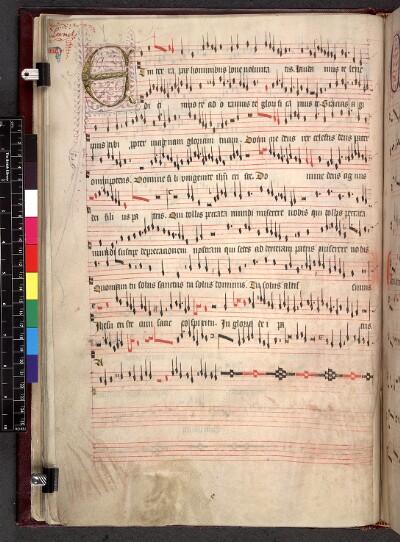 Et in ter ra pax hominibus bone volunta tis. Lauda mus te bene
di ci mus te ad o ramus te glori fi ca mus te Gratias a gi
mus tibi pter magnam gloriam tuam. Domine deus rex celestis deus pater
omnipotens. Domine fi li unigenite ihu cri ste. Do mine deus ag nus
dei fili us pa tris. Qui tollis peccata mundi miserere nobis qui tollis peccata
mundi suscipe deprecacionem nostram qui sedes ad dexteram patris miserere nobis
Quoniam tu solus sanctus tu solus dominus. Tu solus altis simus
Ihesu cri ste cum sanc to spiritu. In gloria de i pa tris
A